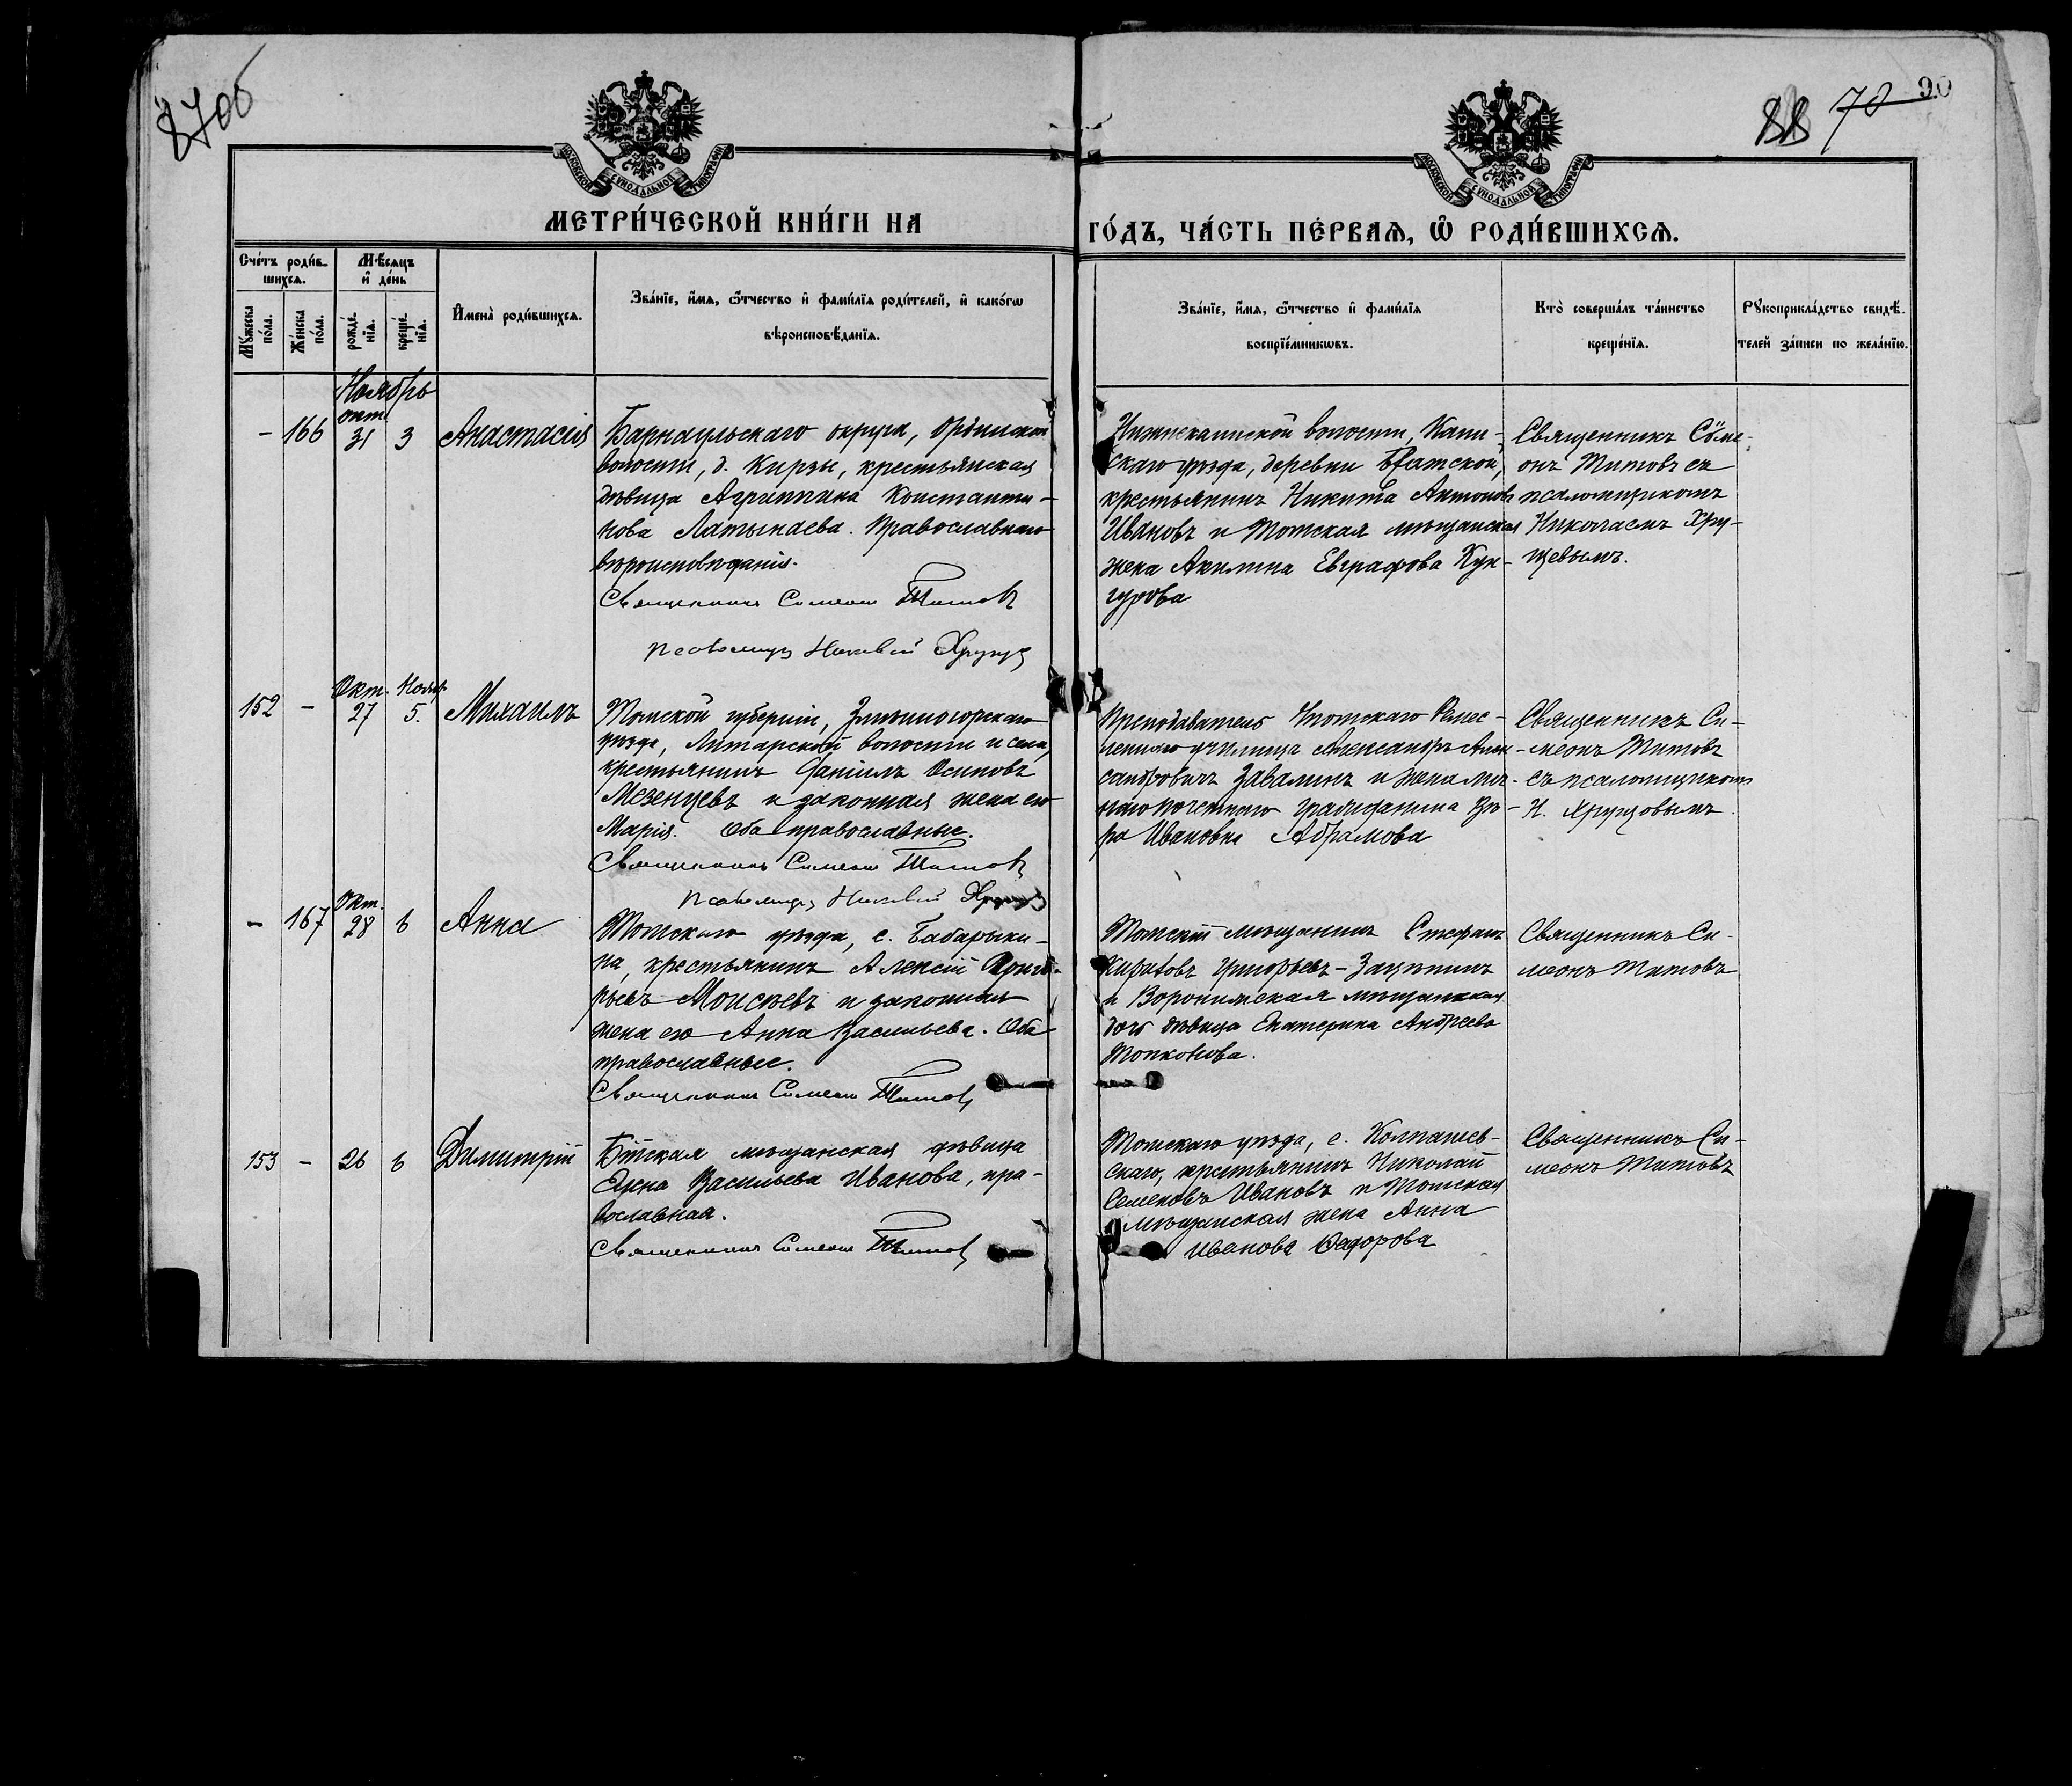 87 об
88 70 90
МОСКОВСКОЙ СѴНОДАЛЬНОЙ ТИПОГРАФІИ
МОСКОВСКОЙ СѴНОДАЛЬНОЙ ТИПОГРАФІИ
МЕТРИ́ЧЕСКОЙ КНИ́ГИ НА
ГО́ДЪ, ЧА́СТЬ ПЕ́РВАѦ, Ѽ РОДИ́ВШИХСѦ.
Сче́тъ роди́в-
шихсѧ.
Мꙋ́жеска
по́ла.
Же́нска
по́ла.
Мѣ́сѧцъ
и҆ де́нь
рожде́-
нїѧ.
креще́-
нїѧ.
И҆мена̀ роди́вшихсѧ.
Зва́нїе, и҆́мѧ, ѻ҆́тчество и҆ фами́лїѧ роди́телей, и҆ како́гѡ
вѣроисповѣ́данїѧ.
Зва́нїе, и҆́мѧ, ѻ҆́тчество и҆ фами́лїѧ
воспрїе́мникѡвъ.
Кто̀ соверша́лъ та́инство
креще́нїѧ.
Рꙋкоприкла́дство свидѣ́-
телей за́писи по жела́нїю.
Ноябрь
- 166 окт. 31 3 Анастасія
Барнаульскаго округа, Ординской
волости, д. Кирзы, крестьянская
дѣвица Агриппина Константи-
нова Латынаева. Православнаго
вѣроисповѣданія.
Священникъ Симеонъ Титовъ
псаломщ Николай Хрущ
Нижнекаинской волости, Каин-
скаго уѣзда, деревни Братской,
крестьянинъ Никита Антоновъ
Ивановъ и Томская мѣщанская
жена Акилина Евграфова Кун-
гурова
Священникъ Симе-
онъ Титовъ съ
псаломщикомъ
Николаемъ Хру-
щевымъ.
152 - Окт. 27 Нояб. 5. Михаилъ
Томской губерніи, Змѣиногорскаго
уѣзда, волости и села,
крестьянинъ Даніилъ Осиповъ
Мезенцевъ и законная жена его
Марія. Оба православные.
Священникъ Симеонъ Титовъ
псаломщ Николай Хрущ
Преподаватель Томскаго Ремес-
леннаго училища Александръ Алек-
сандровичъ Завалинъ и жена лич-
наго почетнаго гражданина Вѣ-
ра Ивановна Абрамова
Священникъ Си-
меонъ Титовъ
съ псаломщикомъ
Н. Хрущовымъ.
- 167 Окт. 28 6 Анна
Томскаго уѣзда, с. Бабарыки-
на, крестьянинъ Алексій Григо-
рьевъ Моисеевъ и законная
жена его Анна Васильева. Оба
православные.
Священникъ Симеонъ Титовъ
Томскій мѣщанинъ Стефанъ
Григорьевъ-Зацепинъ
и Воронежская мѣщанская
дочь дѣвица Екатерина Андреева
Священникъ Си-
меонъ Титовъ
153 - 26 6 Димитрій
Бійская мѣщанская дѣвица
Васильева Иванова, пра-
вославная.
Священникъ Симеонъ Титовъ
Томскаго уѣзда, с. Колпашев-
скаго, крестьянинъ Николай
Семеновъ Ивановъ и Томская
мѣщанская жена Анна
Иванова Федорова
Священникъ Си-
меонъ Титовъ